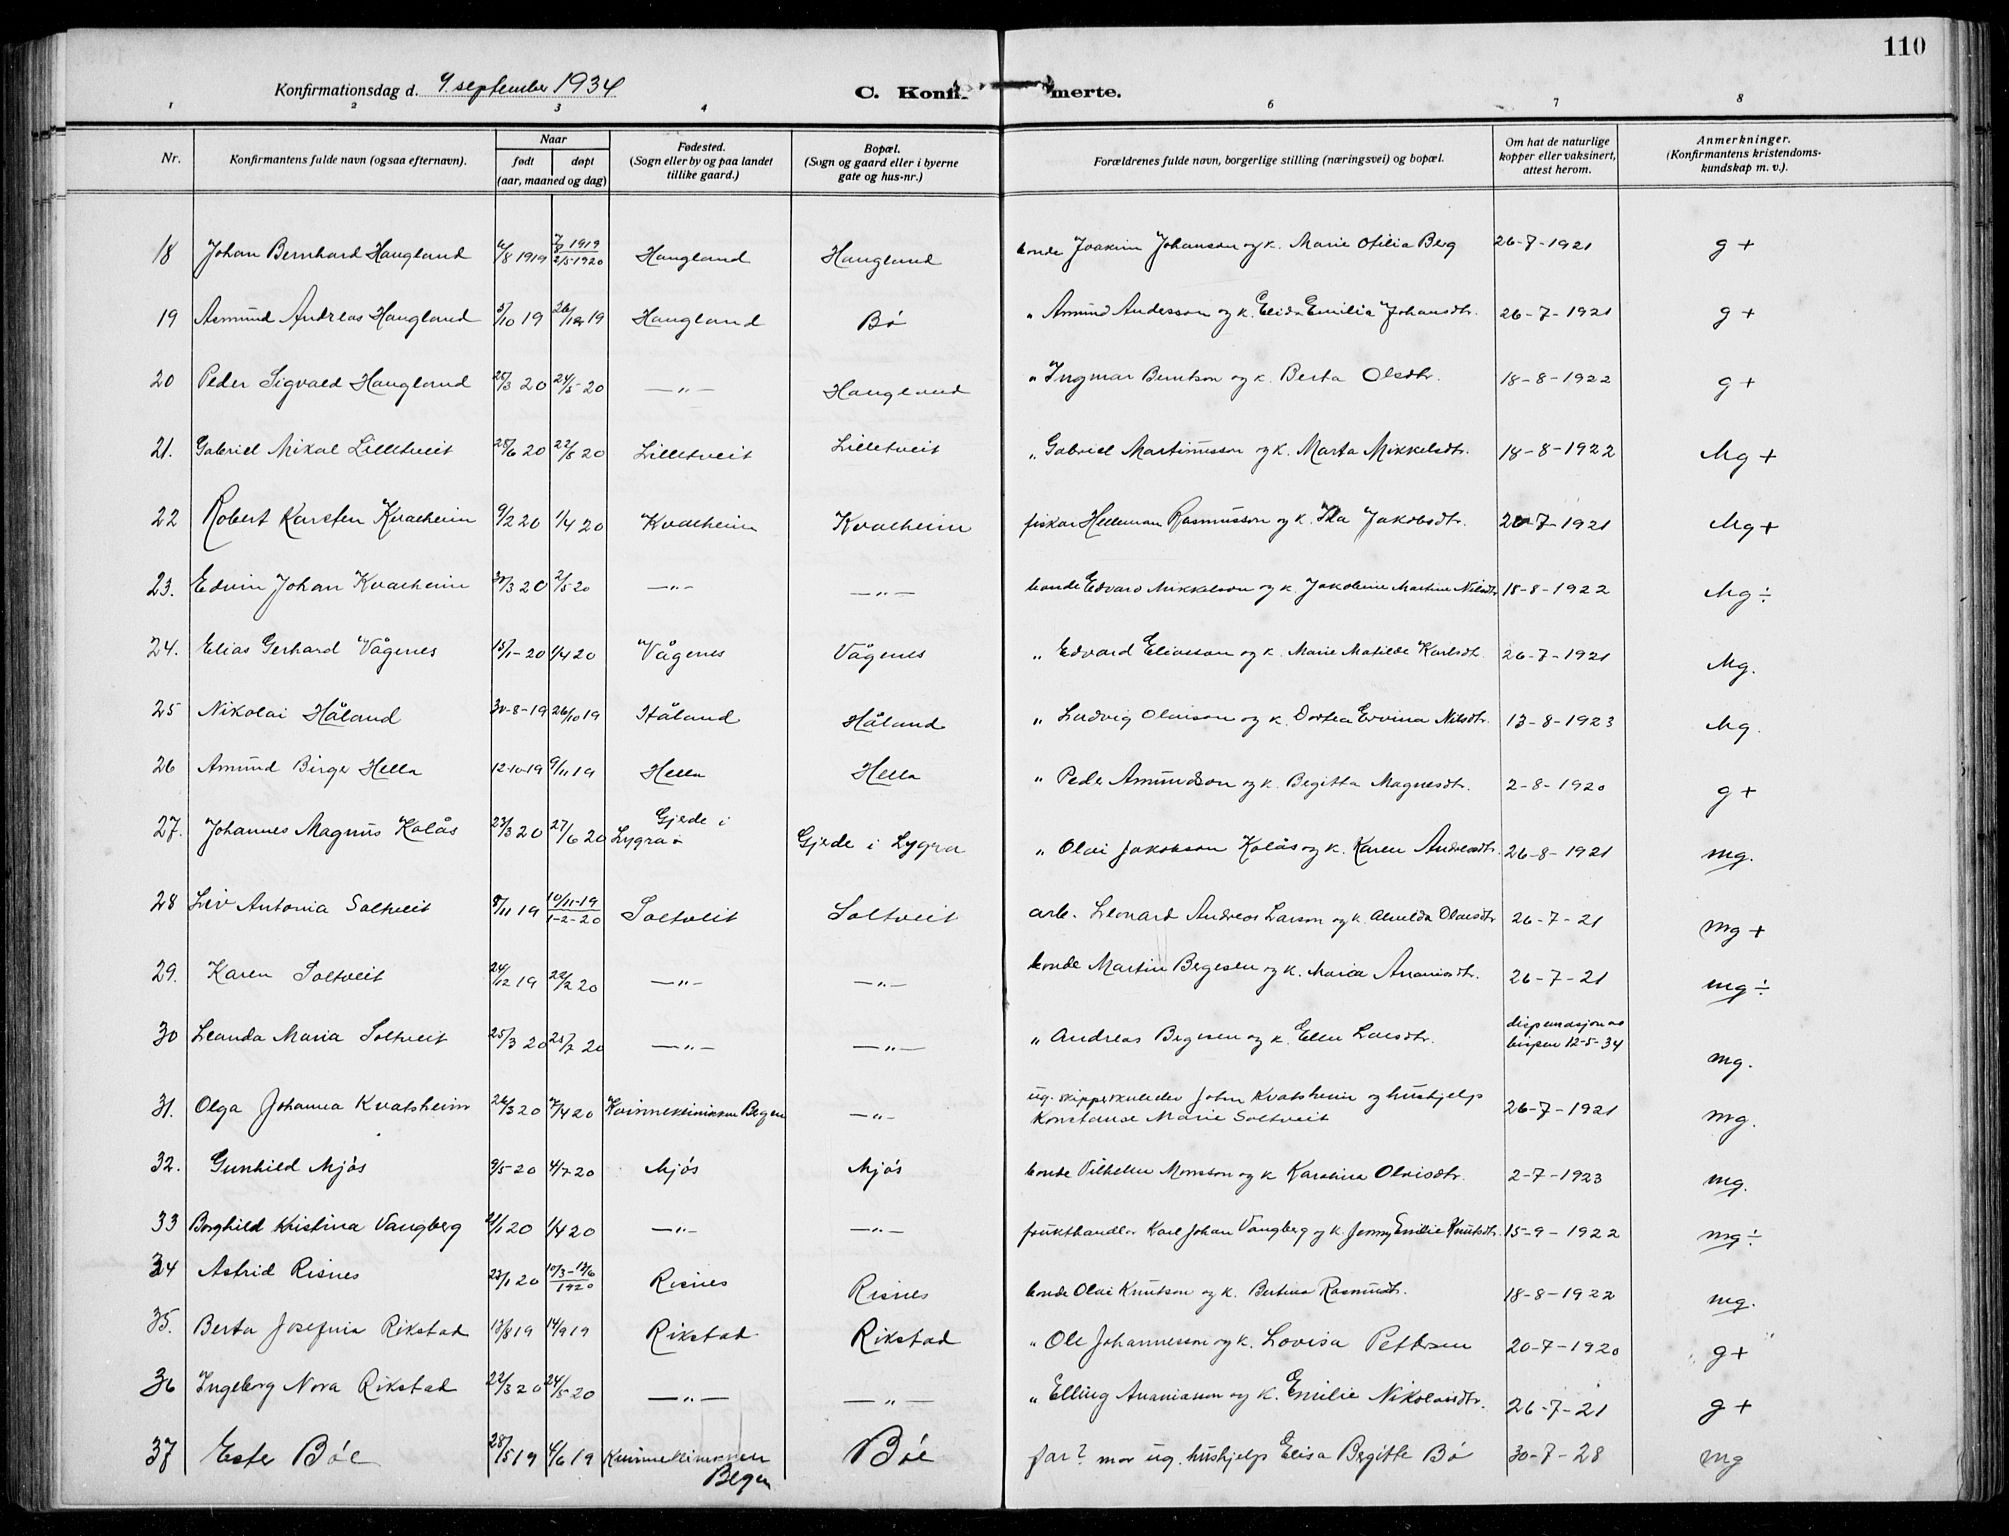 110
Konfirmationsdag d. 9. september 1934
C. Konfi merte.
1 2 3 4 6 7 8
Nr.
Konfirmantens fulde navn (ogsaa efternavn).
Naar
født døpt
(aar, maaned og dag)
Fødested.
(Sogn eller by og paa landet
tillike gaard.)
Bopæl.
(Sogn og gaard eller i byerne
gate og hus-nr.)
Forældrenes fulde navn, borgerlige stilling (næringsvei) og bopæl.
Om hat de naturlige
kopper eller vaksinert,
attest herom.
Anmerkninger.
(Konfirmantens kristendoms-
kundskap m. v.).
18 Johan Bernhard Haugland 6/8 1919 2/5 1920 Haugland Haugland bonde Joakim Johanson og k. Marie Otilia Berg 26-7-1921 g +
19 Asmund Andreas Haugland 5/10 19 26/12 19 Haugland Bö " Amund Andersson og k. Elida Emilia Johansdtr. 26-7-1921 g +
20 Peder Sigvald Haugland 25/3 20 24/5 20 —"— Haugland " Ingmar Berntson og k. Berta Olsdtr. 18-8-1922 g +
21. Gabriel Mikal Lilletveit 28/6 20 22/8 20 Lilletveit Lilletveit " Gabriel Martinusson og k. Marta Mikkelsdtr. 18-8-1922 Mg +
22 Robert Karsten Kvalheim 9/2 20 1/4 20 Kvalheim Kvalheim fiskar Helleman Rasmusson og k. Ida Jakobsdtr. 7-1921 Mg +
23. Edvin Johan Kvalheim 30/3 20 2/5 20 —"— —"— bonde Edvard Mikkelson og k. Jakobine Martine Nilsdtr 18-8-1922 Mg ÷
24. Elias Gerhard Vågenes 15/1-20 1/4 20 Vågenes Vågenes " Edvard Eliasson og k. Marie Matilde Karlsdtr. 26-7-1921 Mg.
25 Nikolai Håland 30-8-19 26/10 19 Håland Håland " Ludvig Olaison og k. Dortea Ervina Nilsdtr. 13-8-1923 Mg.
26 Amund Birger Hella 12-10-19 9/11 19 Hella Hella " Peder Amundson og k. Begitta Magnesdtr. 2-8-1920 g +
27. Johannes Magnus Kolås 23/3 20 27/6 20 Gjerde i
Lygra Gjerde i Lygra " Olai Jakobson Kolås og k. Karen Andreasdtr. 26-8-1921 mg.
28 Liv Antonia Soltveit 8/11 19 10/11-19
1-2-20 Soltveit Soltveit arb. Leonard Andreas Larson og k. Alvilda Olaisdtr 26-7-21 mg +
29. Karen Soltveit 24/12 19 22/2 20 —"— —"— bonde Martin Bergesen og k. Maria Ananiasdtr. 26-7-21 mg ÷
30 Leanda Maria Soltveit 25/3 20 25/7 20 —"— —"— " Andreas Bergesen og k. Ellen Larsdtr. dispensasjon av
bispen 12-5-34 mg.
31. Olga Johanna Kvalsheim 26/3 20 7/4 20 Kvinneklinikken Bergen —"— ug. skipperskuleelev John Kvalsheim og hushjelp
Konstanse Marie Soltveit 26-7-1921 mg.
32. Gunhild Mjös 9/5-20 4/7 20 Mjös Mjös bonde Vilhelm Monsson og k Karoline Olaisdtr. 2-7-1923 mg.
33 Borghild Kristina Vangberg 2/1 20 1/4 20 —"— —"— frukthandler Karl Johan Vangberg og k. Jenny Emilie Knutsdtr. 15-9-1922 mg ÷
34 Astrid Risnes 23/1 20 10/3-13/6
1920 Risnes Risnes bonde Olai Knutson og k. Bertina Rasmusdtr. 18-8-1922 mg.
35. Berta Josefina Rikstad 13/8 19 14/9 19 Rikstad Rikstad " Ole Johannesson og k. Lovisa Pettersen 20-7-1920 g +
36 Ingeborg Nora Rikstad 22/3 20 24/5 20 —"— —"— " Elling Ananiasson og k. Emilie Nikolaisdtr. 26-7-21 g +
37 Ester Böe 28/5 19 4/6 19 Kvinneklinikken
Bergen Böe far? mor ug. hushjelp Elisa Bergitte Bö 30-7-28 mg